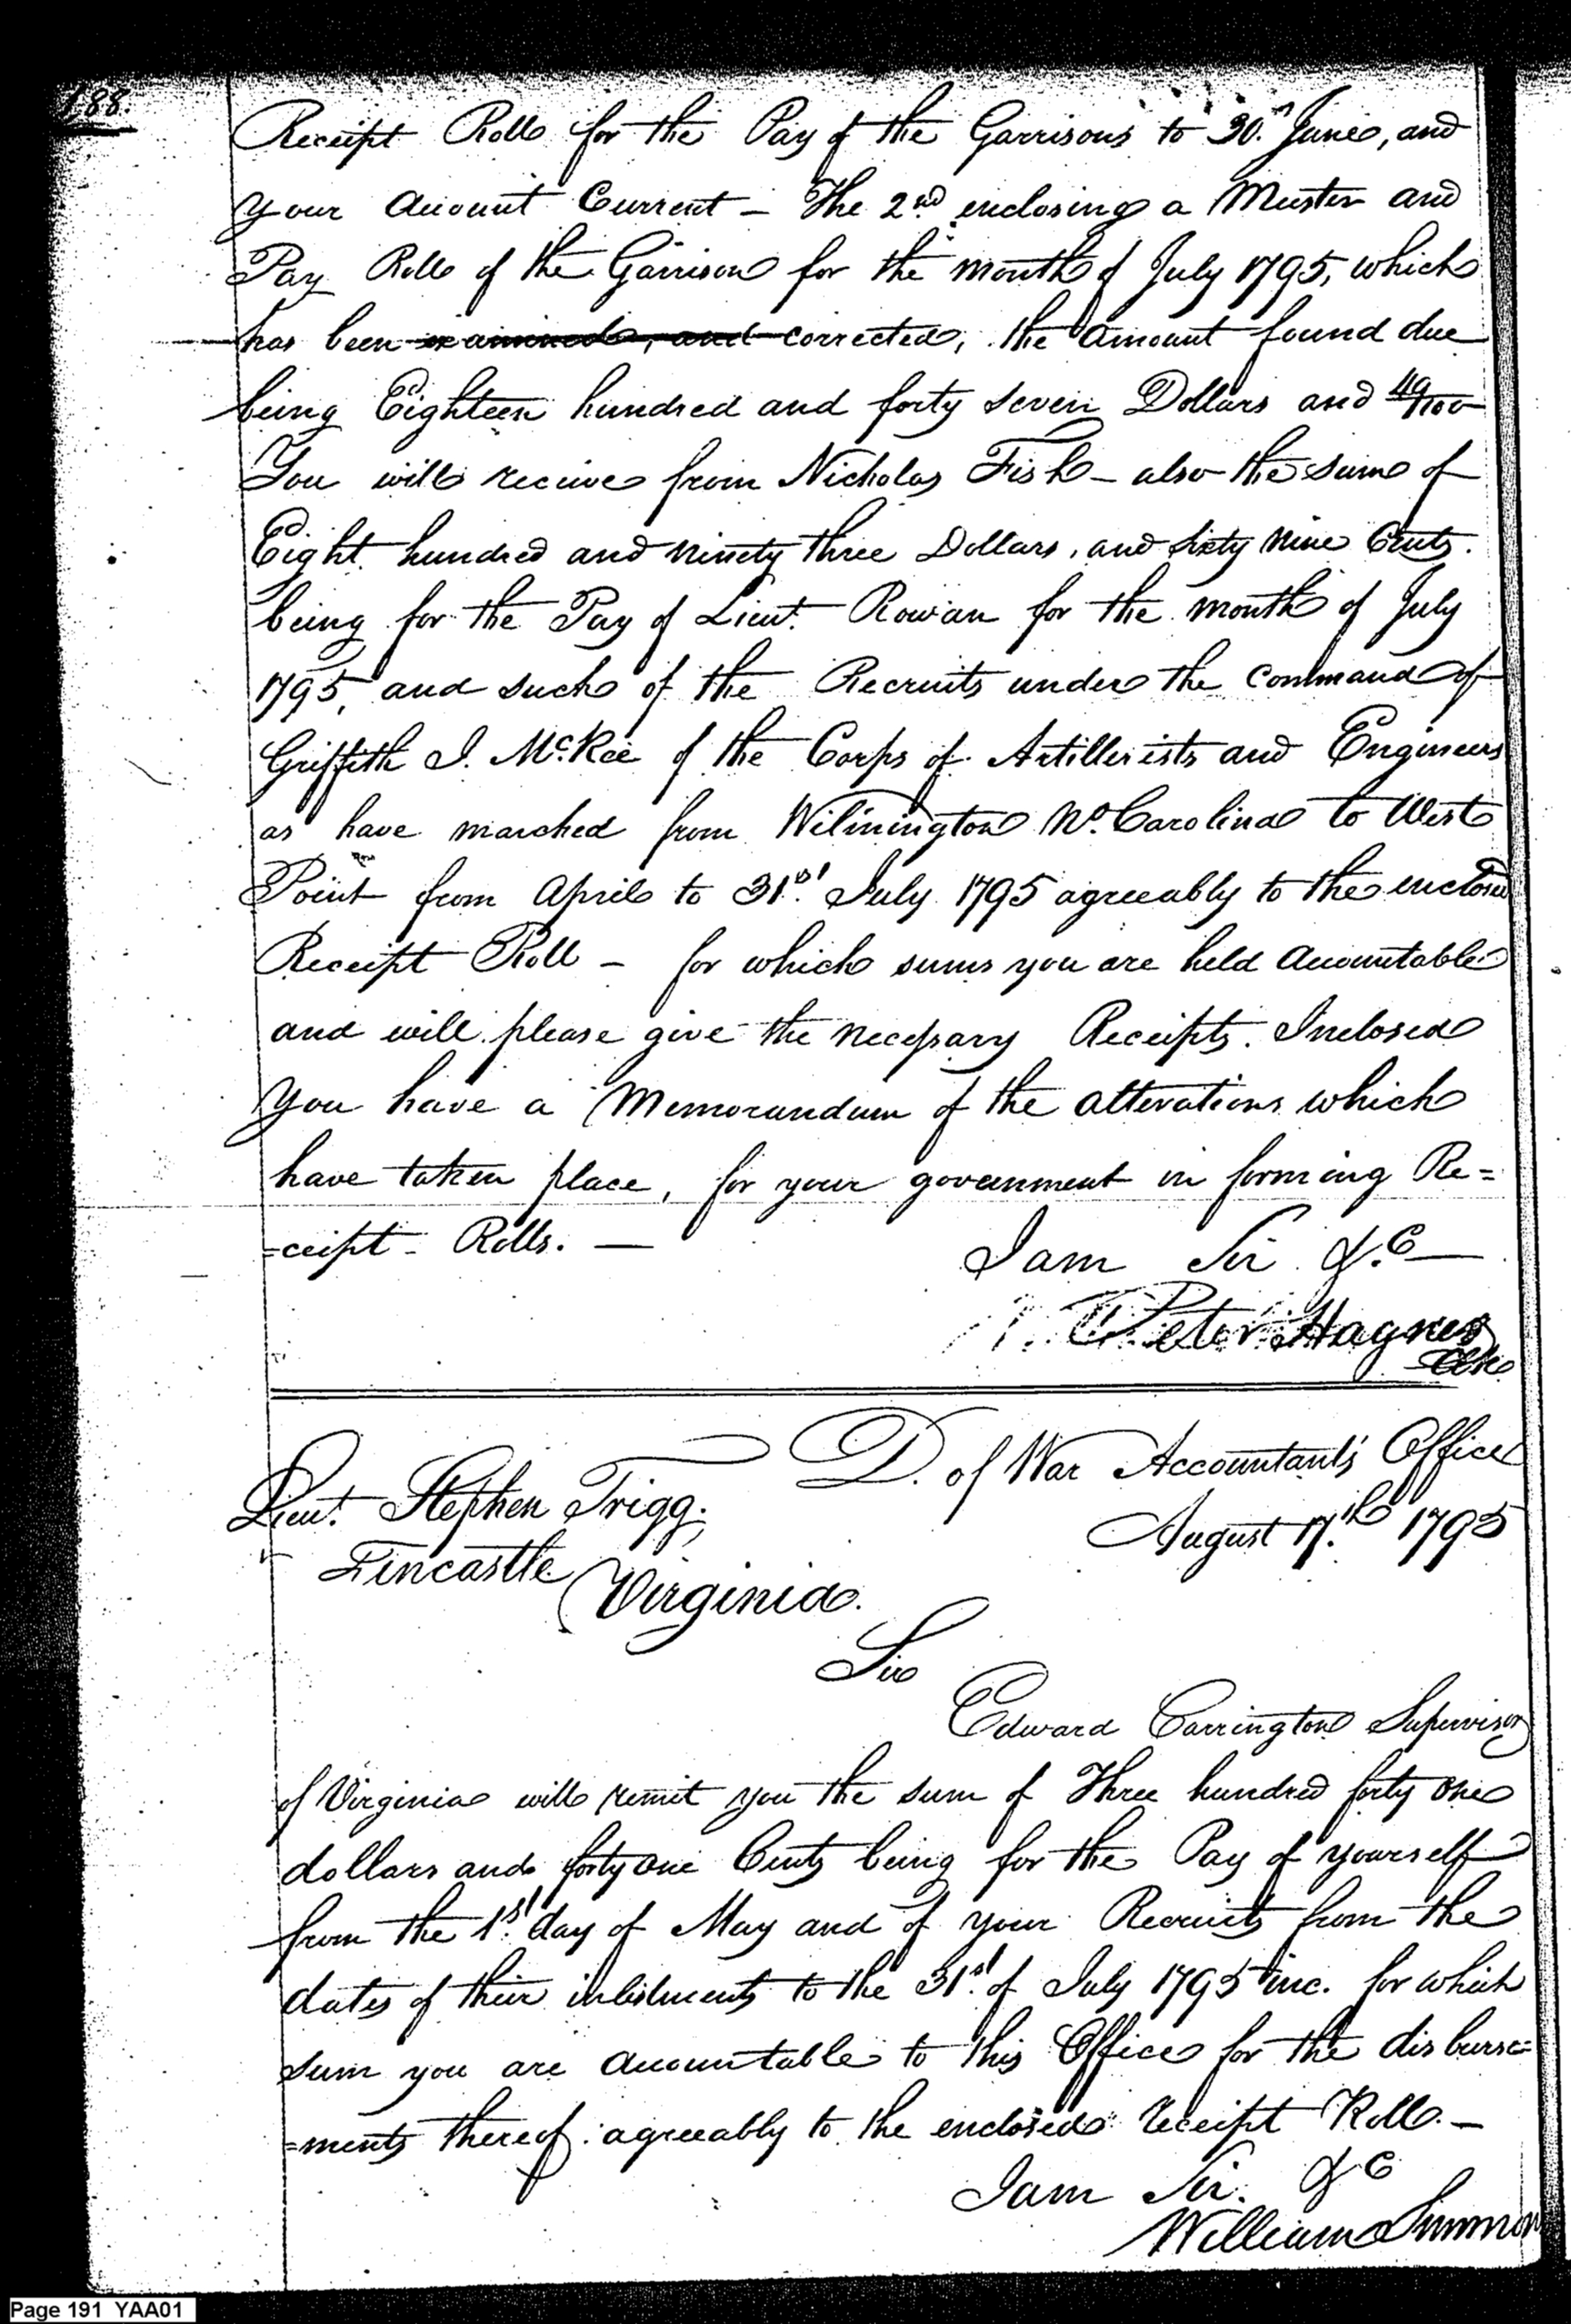 188.
Receipt Roll for the Pay of the Garrisons to 30.th June, and
your Account Current – The 2nd enclosing a Muster and
Pay Roll of the Garrison for the month of July 1795, which
has been examined, and corrected, the amount found due
being Eighteen hundred and forty seven Dollars and 49/100
You will receive from Nicholas Fish – also the sum of
Eight hundred and ninety three Dollars, and sixty nine Cents.
being for the Pay of Lieut. Rowan for the month of July
1795, and such of the Recruits under the command of
Griffith J. McRee of the Corps of Artillerists and Engineers
as have marched from Wilmington No. Carolina to West
Point from April to 31st. July 1795 agreeably to the enclosed
Receipt Roll – for which sums you are held accountable
and will please give the necessary Receipts. Inclosed
you have a Memorandum of the alterations which
have taken place, for your government in forming Re=
=ceipt Rolls. —
I am Sir &.c
Peter Hagner
Clk
D. of War Accountant's Office
August 17.th 1795
Lieut. Stephen Trigg.
Fincastle
Virginia.
Sir
Edward Carrington Supervisor
of Virginia will remit you the sum of Three hundred forty one
dollars and forty one Cents being for the Pay of yourself
from the 1st. day of May and of your Recruits from the
dates of their inlistments to the 31st. of July 1795 inc. for which
sum you are accountable to this Office for the disburse=
=ments thereof agreeably to the enclosed receipt Roll. –
I am Sir. &c
William Simmons
Page 191 YAA01